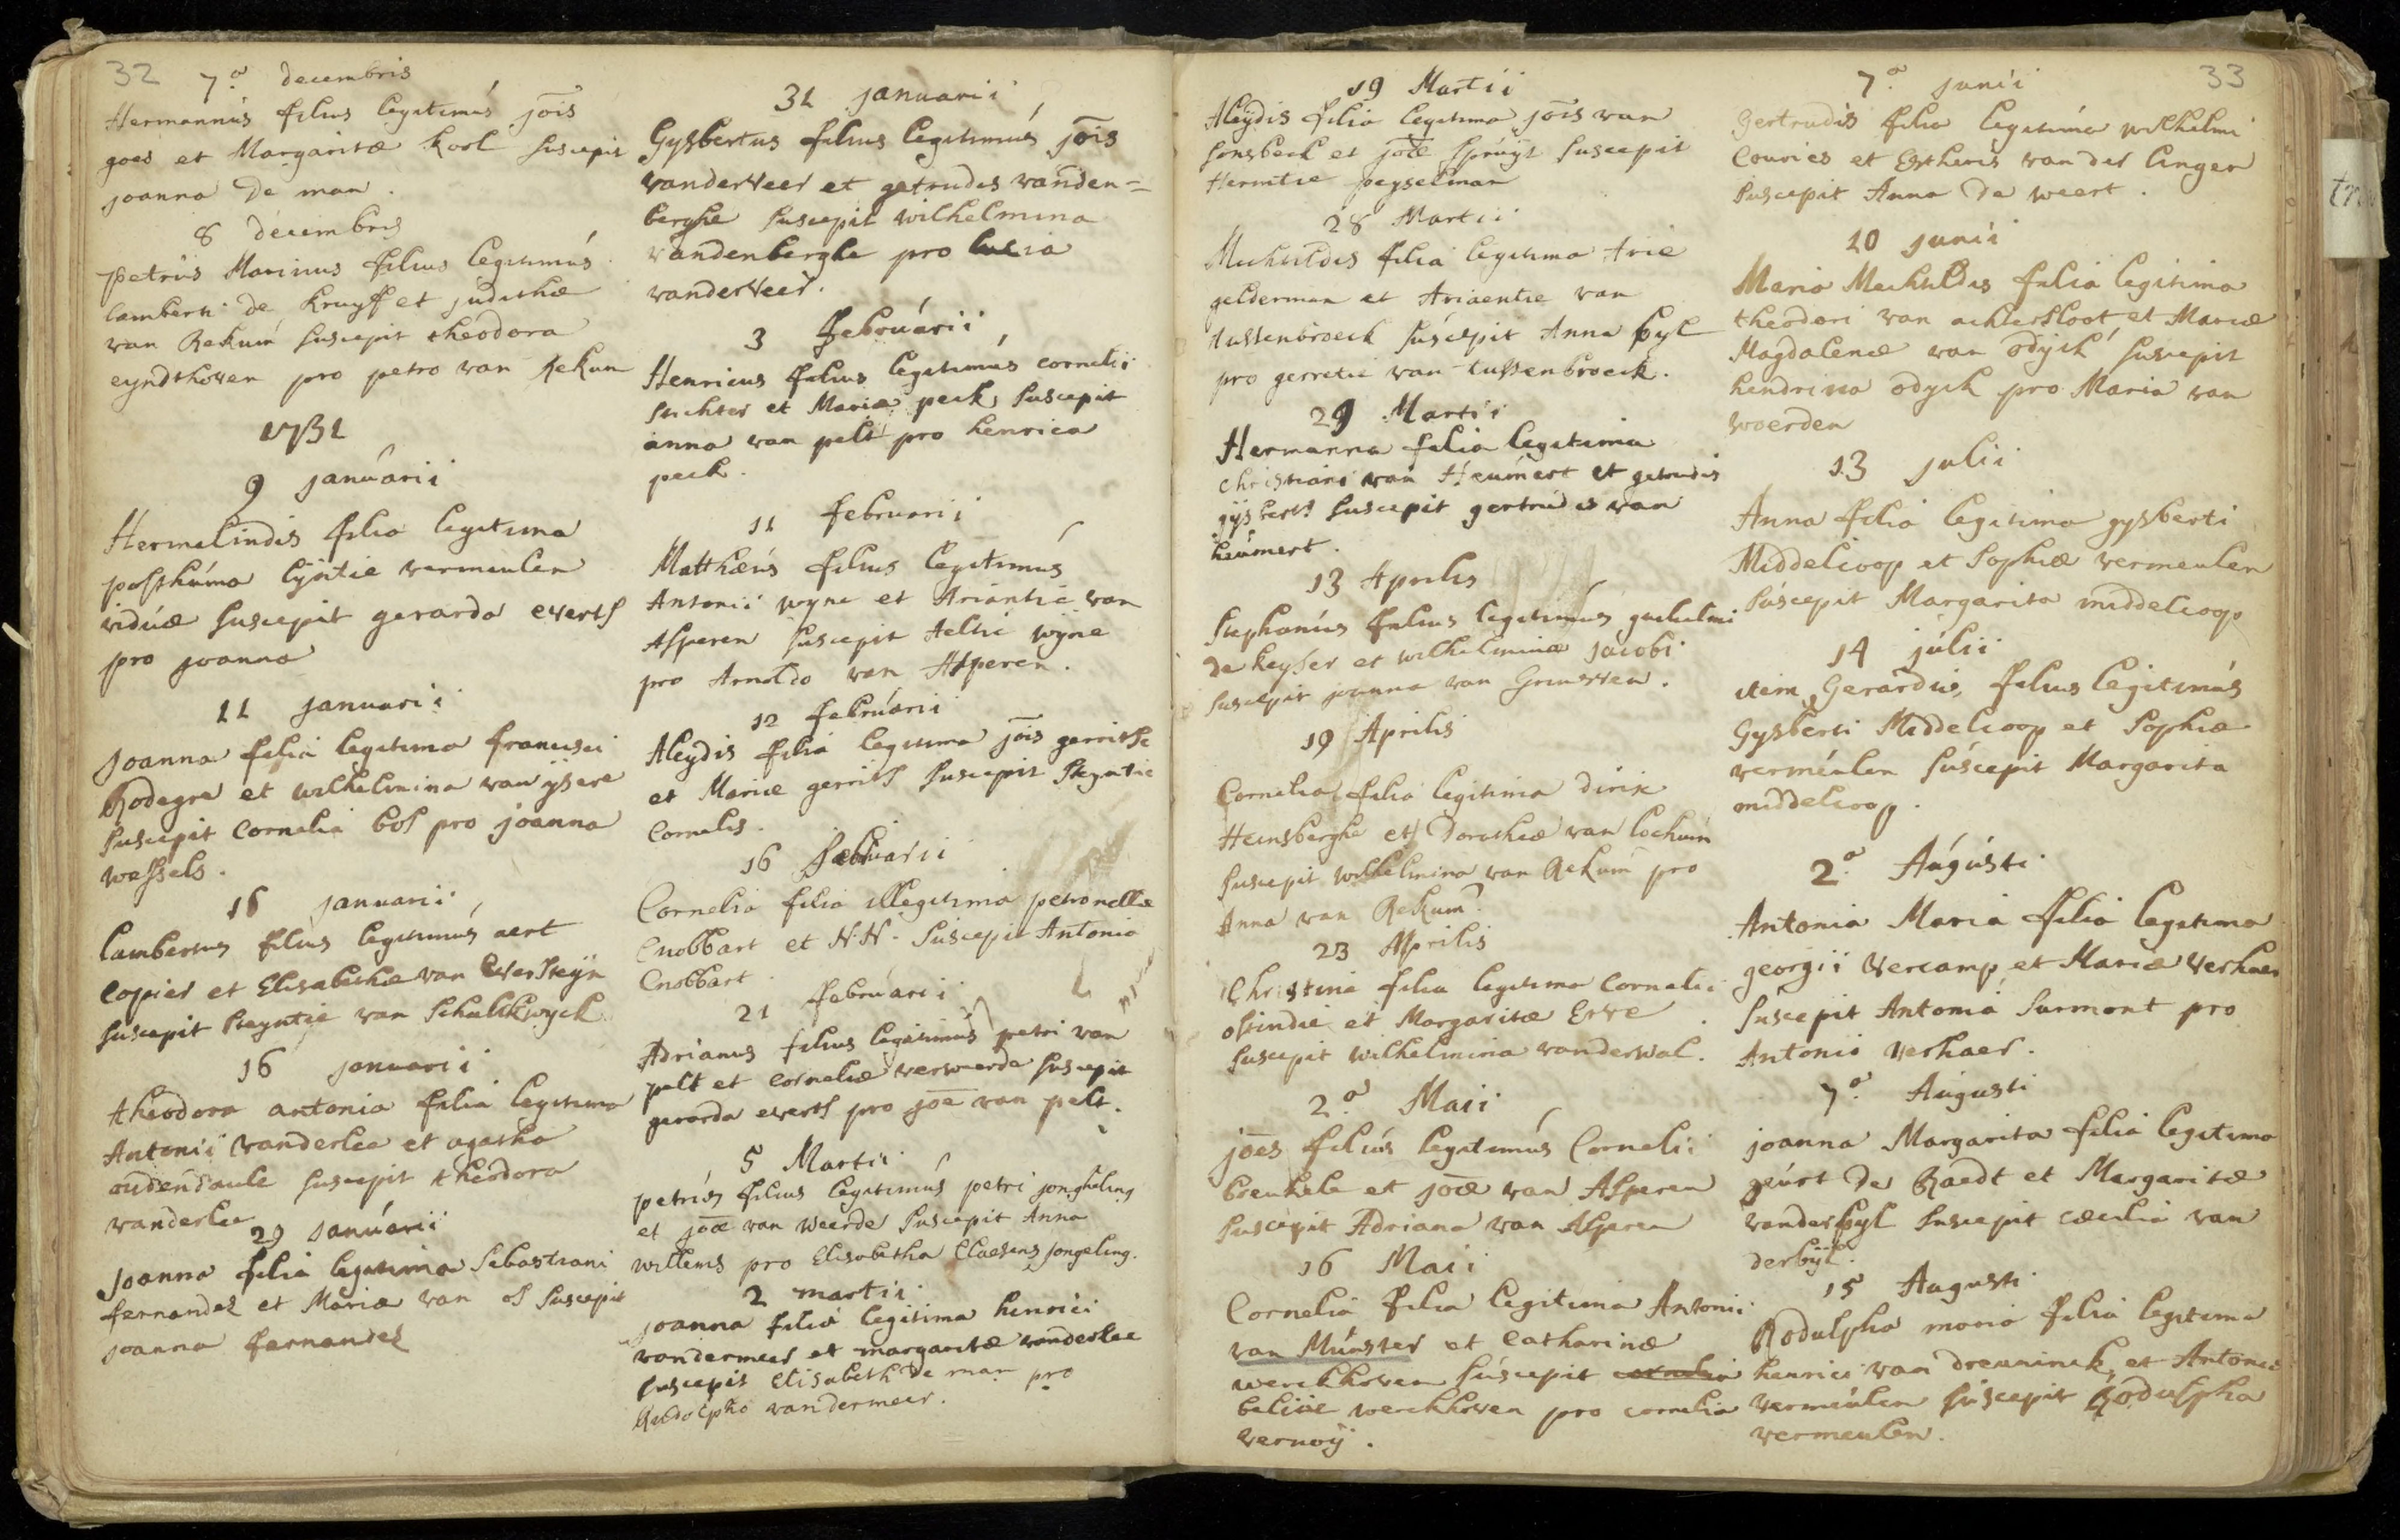 32
7.º decembris
Hermannús filius legitimús jōis
goes et Margaritæ kool suscepit
joanna de man.
8 decembris
petrús Marinus filius legitimús
lamberti de kruyff et judithæ
van Rekum suscepit theodora
eyndthoven pro petro van Rekum
1731
9 januárii
Hermelindis filia legitima
posthúma lijsitie vermeulen
vidúæ suscepit gerarda everts
pro joanna
11 januarii
Joanna filia legitima francisci
Rodegra et wilhelmina van ysere
suscepit Cornelia bos pro joanna
wessels.
16 januarii
lambertus filius legitimús aert
Copier et Elisabethæ van Eversteyn
suscepit steyntie van Schalckwyck
16 januarii
theodora antonia filia legitima
Antonii vanderlee et agatha
oudendaule suscepit theodora
vanderlee
29 januárii
Joanna filia legitima Sebastiani
fernandes et Mariæ van os suscepit
joanna fernandes
31 januarii
Gysbertus filius legitimús jōis
vanderveer et getrudis vanden=
berghe suscepit wilhelmina
vandenberghe pro lucia
vanderveer.
3 februárii
Henricus filius legitimús cornelii
stichter et Mariæ peck suscepit
anna van pelt pro henrica
peck.
11 februarii
Matthæús filius legitimús
Antonii wyne et Ariantie van
Asperen suscepit Aeltie wyne
pro Arnoldo van Asperen.
12 februárii
Aleydis filia legitima jōis gerritse
et Mariæ gerrits suscepit Steyntie
Cornelis.
16 februarii
Cornelia filia illegitima petronellæ
Cnobbart et N.N. suscepit Antonia
Cnobbart.
21 februarii
Adrianus filius legitimús petri van
pelt et corneliæ verweerde suscepit
gerarda everts pro jōe van pelt.
5 Martii
petrús filius legitimús petri jongheling
et jōæ van weerde suscepit Anna
willems pro Elisabetha Claesens jongeling.
2 martii
joanna filia legitima henrici
vandermeer et margaritæ vanderlee
suscepit Elisabeth de man pro
Rudolpho vandermeer.
19 Martii
Aleydis filia legitima jōis van
sonsbeek et jōæ sprúyt suscepit
Hermtie peyselman
28 Martii
Mechtildis filia legitima Arie
gelderman et Ariaentie van
tussenbroeck súscepit Anna byl
pro gerretie van tussenbroeck.
29 Martii
Hermanna filia legitima
christiani van Heumert et getrudis
gysberts suscepit gertrudis van
heúmert.
13 Aprilis
Stephanús filius legitimús guilielmi
de keyser et wilhelminæ jacobi
suscepit joanna van Grinsven.
19 Aprilis
Cornelia filia legitima dirix
Heinsberghe et Dorotheæ van lochum
suscepit wilhelmina van Rekum pro
Anna van Rekum.
23 Aprilis
Christina filia legitima Cornelii
ostindie et Margaritæ Erve
suscepit wilhelmina vanderwal.
2.º Maii
jōes filiús legitimús Cornelii
breukele et jōæ van Asperen
suscepit Adriana van Asperen
16 Maii
Cornelia filia legitima Antonii
van Múnster et Catharinæ
werckhoven súscepit cornelia
belitie werckhoven pro cornelia
vernoy.
33
7.º junii
Gertrudis filia legitima wilhelmi
Couries et Estheris van der linger
suscepit Anna de weert.
10 junii
Maria Mechtildis filia legitima
theodori van achtersloot et Mariæ
Magdalenæ van odyck suscepit
hendrina odyck pro Maria van
woerden
13 julii
Anna filia legitima gysberti
Middelcoop et Sophiæ vermeulen
súscepit Margarita middelcoop
14 júlii
item Gerardus filius legitimús
Gysberti Middelcoop et Sophiæ
verméulen súscepit Margarita
middelcoop.
2.º Aúgústi
Antonia Maria filia legitima
georgii Vercamp et Mariæ Verhaer
súscepit Antonia surmont pro
Antonio Verhaer.
7.º Aúgusti
joanna Margarita filia legitima
geúrt de Raedt et Margaritæ
vanderbyl suscepit cæcilia van
derbyl.
15 Augusti
Rodulpha maria filia legitima
henrici van dreuninck et Antoniæ
verméulen súscepit Rodulpha
vermeulen.